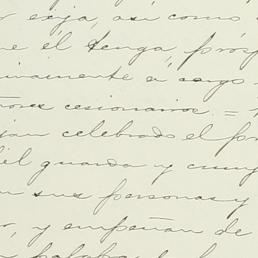 exija, así como
él tenga, prós
ivamente á cargo
ñores cesionarios. =
jan celebrado el pr
él guarda y cump
n sus personas y
, y empeñan de
palabra